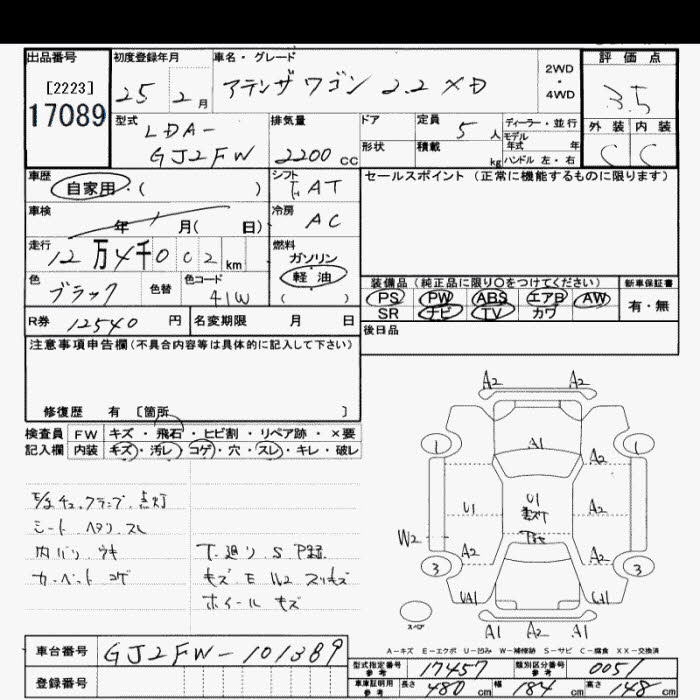 出品番号 初度登録年月 車名・グレード 2WD・4WD 評価点
[2223] 25 2月 アテンザワゴン 2.2 XD 3.5
17089
型式 LDA-GJ2FW 排気量 2200cc ドア 定員 5人 ディーラー・並行 外装 内装
形状 積載 kg モデル年式 年 C C
ハンドル 左・右
車歴 自家用・( ) シフト AT セールスポイント (正常に機能するものに限ります)
車検 年 月( 日) 冷房 AC
走行 12万4千002km 燃料 ガソリン
軽・油
( )
色 ブラック 色替 色コード 41W
装備品 (純正品に限り○をつけてください) 新車保証書
PS PW ABS エアB AW 有・無
SR ナビ TV カワ
R券 12540円 名変期限 月 日 後日品
注意事項申告欄(不具合内容等は具体的に記入して下さい)
修復歴 有 〔箇所 〕
検査員 FW キズ・飛石・ヒビ割・リペア跡・×要
記入欄 内装 キズ・汚レ・コゲ・穴・スレ・キレ・破レ
ランプ 点灯
シート ヘタリ スレ
内バリ ウキ
カーペット コゲ
キズ E W2 スリキズ
ホイール キズ
A2 A2
1 A1 1
A2
U1 U1 A2
W2
A2 A2
3 3
UA1
スペア
A1 A2 A1
A-キズ E-エクボ U-凹み W-補修跡 S-サビ C-腐食 XX-交換済
車台番号 GJ2FW-101389
登録番号
型式指定番号 参考 17457 類別区分番号 参考 0051
車庫証明用 参考 長さ 480cm 幅 184cm 高さ 148cm